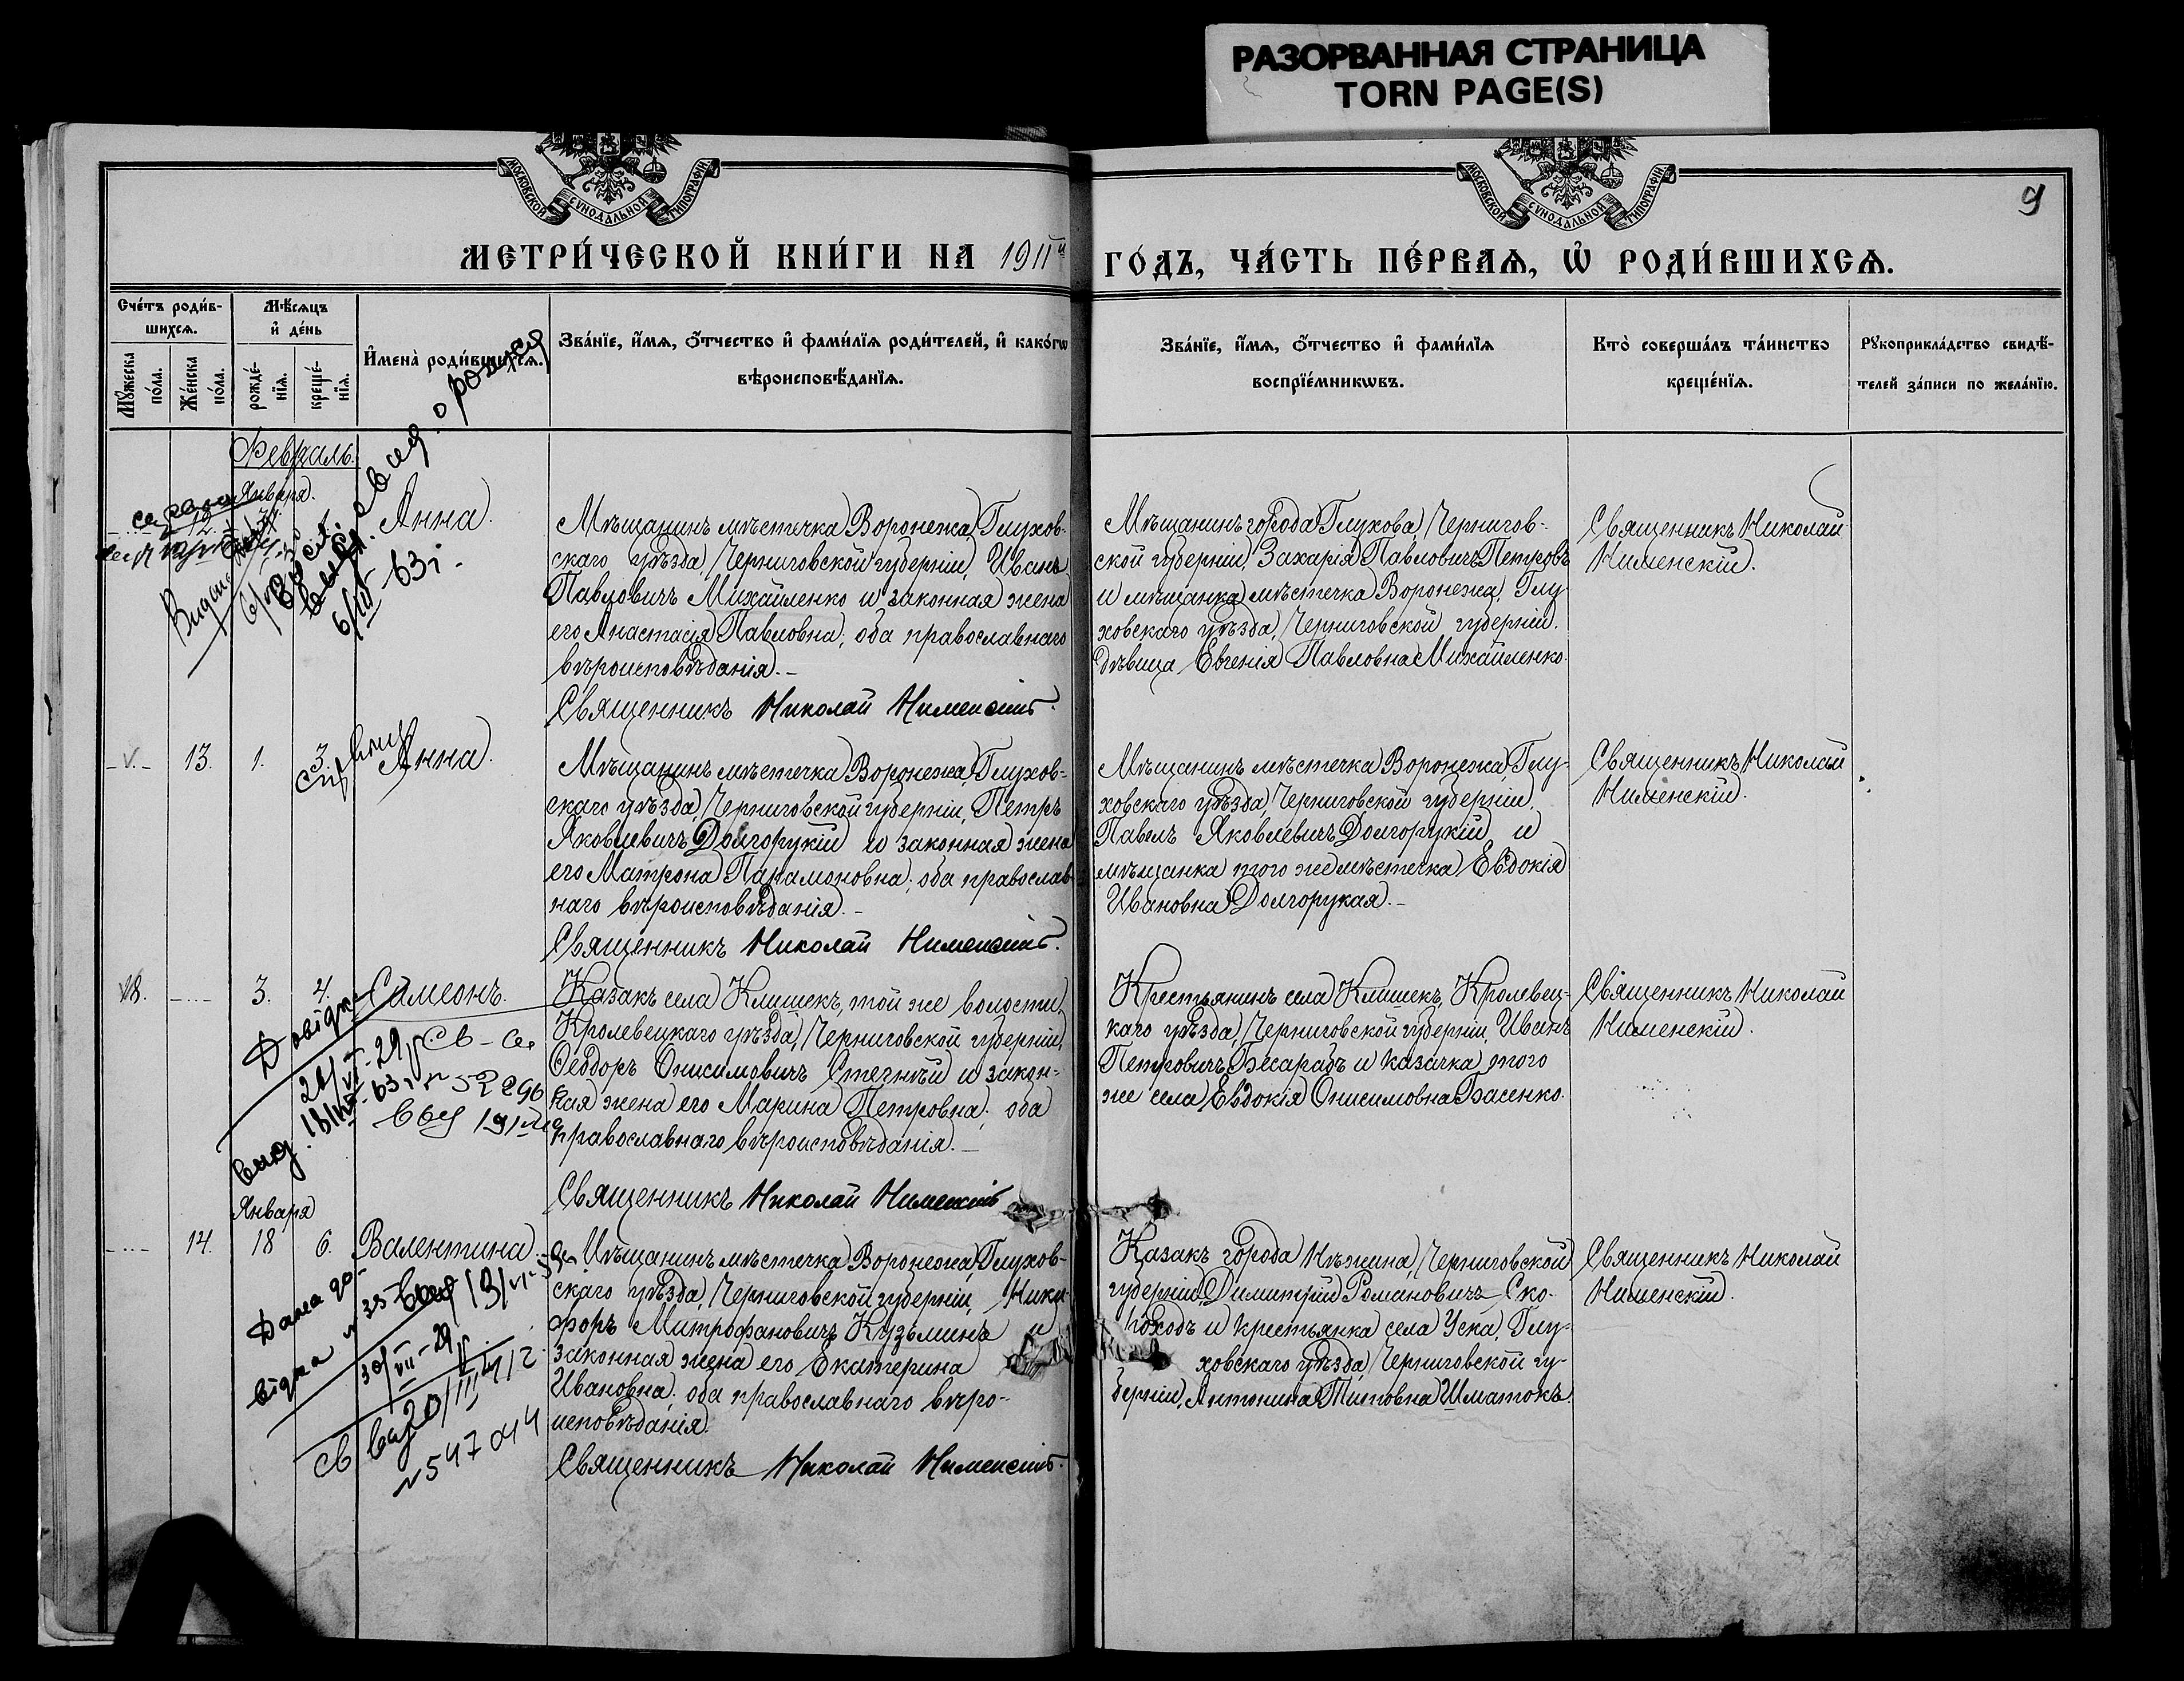 РАЗОРВАННАЯ СТРАНИЦА
TORN PAGE(S)
МОСКОВСКОЙ СѴНОДАЛЬНОЙ ТИПОГРАФІИ
МОСКОВСКОЙ СѴНОДАЛЬНОЙ ТИПОГРАФІИ
9
МЕТРИ́ЧЕСКОЙ КНИ́ГИ НА 1911й ГО́ДЪ, ЧА́СТЬ ПЕ́РВАѦ, Ѡ҆ РОДИ́ВШИХСѦ.
Сче́тъ роди́в-
шихсѧ.
Мꙋ́жеска по́ла.
Же́нска по́ла.
Мѣ́сѧцъ
и҆ де́нь
рожде́-нїѧ.
креще́-нїѧ.
И҆мена̀ роди́вшихсѧ.
Зва́нїе, и҆́мѧ, ѻ҆́тчество и҆ фами́лїѧ роди́телей, и҆ како́гѡ
вѣроисповѣ́данїѧ.
Зва́нїе, и҆́мѧ, ѻ҆́тчество и҆ фами́лїѧ
воспрїе́мникѡвъ.
Кто̀ соверша́лъ та́инство
креще́нїѧ.
Рꙋкоприкла́дство свидѣ́-
телей за́писи по жела́нїю.
Февраль.
Января.
12.
Анна.
Мѣщанинъ мѣстечка Воронежа, Глухов-
скаго уѣзда, Черниговской губерніи, Иванъ
Павловичъ Михайленко и законная жена
его Анастасія Павловна; оба православнаго
вѣроисповѣданія.–
Священникъ Николай Нименскій.
Мѣщанинъ города Глухова, Чернигов-
ской губерніи, Захарія Павловичъ Петровъ
и мѣщанка мѣстечка Воронежа, Глу-
ховскаго уѣзда, Черниговской губерніи,
дѣвица Евгенія Павловна Михайленко.
Священникъ Николай
Нименскій.
13. 1. 3. Анна.
Мѣщанинъ мѣстечка Воронежа, Глухов-
скаго уѣзда, Черниговской губерніи, Петръ
Яковлевичъ Долгорукій и законная жена
его Матрона Парамоновна; оба православ-
наго вѣроисповѣданія.–
Священникъ Николай Нименскій.
Мѣщанинъ мѣстечка Воронежа, Глу-
ховскаго уѣзда, Черниговской губерніи,
Павелъ Яковлевичъ Долгорукій и
мѣщанка того же мѣстечка Евдокія
Ивановна Долгорукая.–
Священникъ Николай
Нименскій.
18. 3. 4. Симеонъ.
Довідка
20/VI-29р
№ 52296
Казакъ села Клишекъ, той же волости,
Кролевецкаго уѣзда, Черниговской губерніи,
Ѳеодоръ Онисимовичъ Стегній и закон-
ная жена его Марина Петровна; оба
православнаго вѣроисповѣданія.–
Священникъ Николай Нименскій
Крестьянинъ села Клишекъ, Кролевец-
каго уѣзда, Черниговской губерніи, Иванъ
Петровичъ Бесарабъ и казачка того
же села Евдокія Онисимовна Басенко.
Священникъ Николай
Нименскій.
Января
14. 18 6. Валентина.
Дана до-
відка
30/VII-29р
20/III
№547044
Мѣщанинъ мѣстечка Воронежа, Глухов-
скаго уѣзда, Черниговской губерніи, Ники-
форъ Митрофановичъ Кузьминъ и
законная жена его Екатерина
Ивановна; оба православнаго вѣро-
исповѣданія.
Священникъ Николай Нименскій.
Казакъ города Нѣжина, Черниговской
губерніи, Димитрій Романовичъ Ско-
роходъ и крестьянка села Уска, Глу-
ховскаго уѣзда, Черниговской гу-
берніи, Антонина Титовна Шматокъ.
Священникъ Николай
Нименскій.